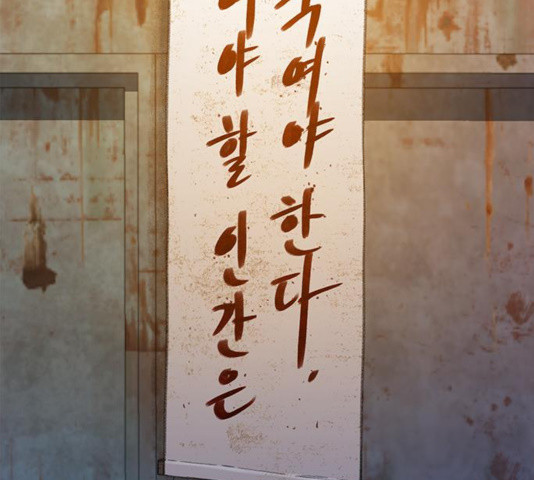 야 할 인간은
죽여야 한다.